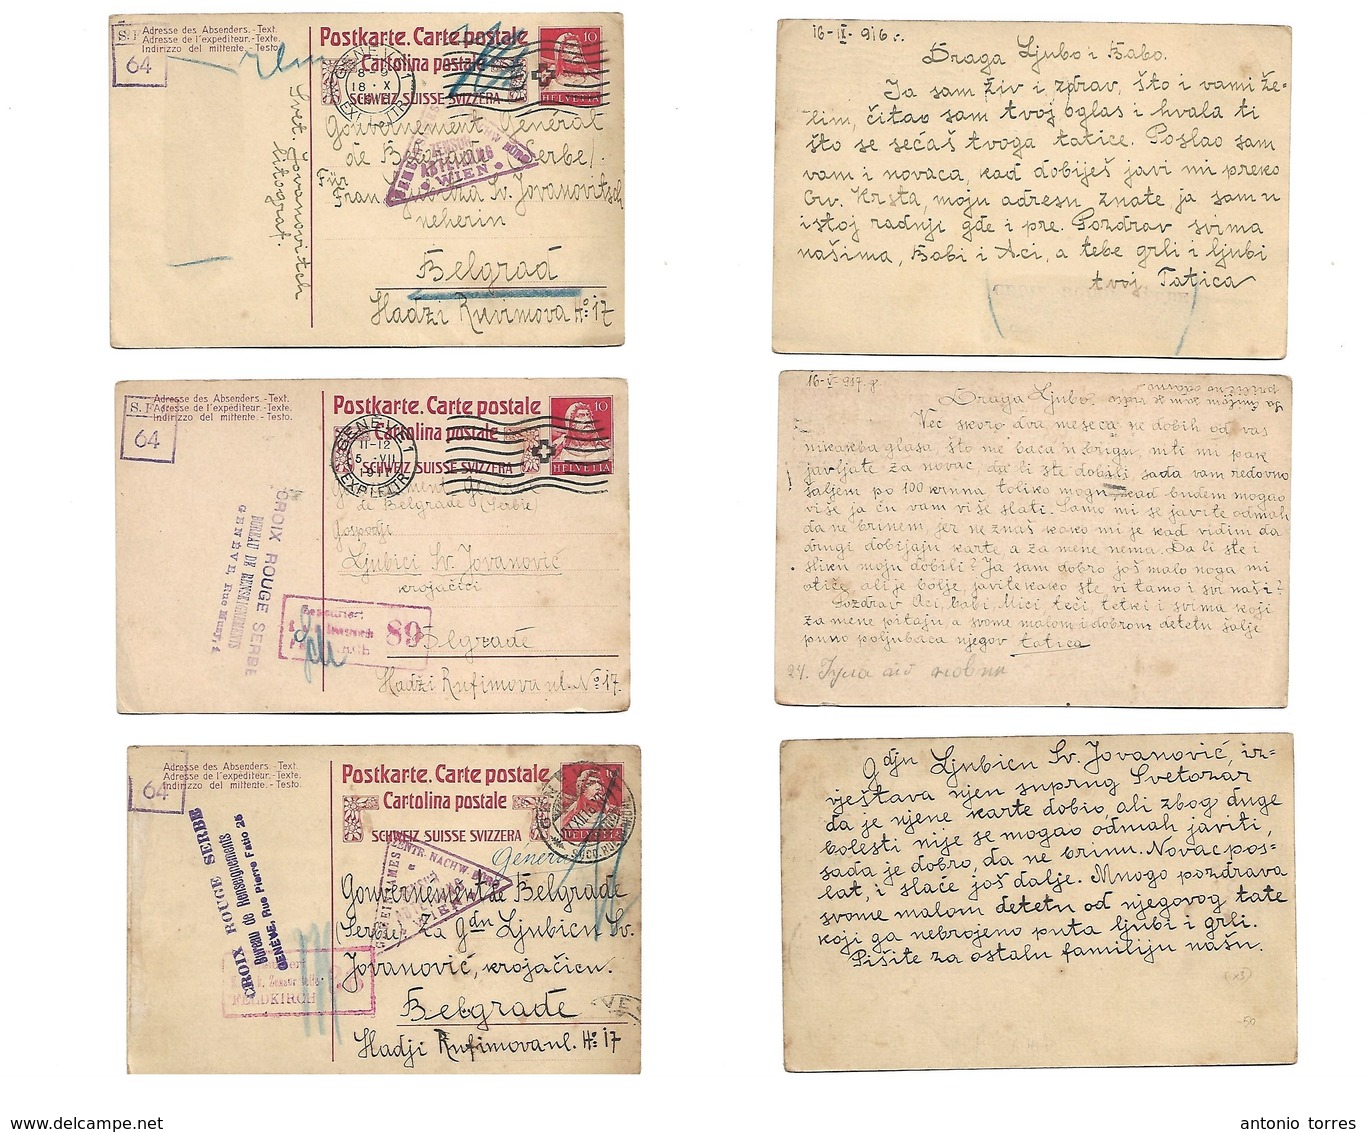 S.
64
Adresse des Absenders. -Text.
Adresse de l'expéditeur. -Texte.
Indirizzo del mittente. -Testo.
Postkarte. Carte postale
Cartolina postale
SCHWEIZ SUISSE SVIZZERA
10
HELVETIA
GENÈVE 1
8-9
18 X
EXP. LETTR.
ZENSUR
ABTEILUNG
WIEN
Gouvernement Général
de Belgrade (Serbe).
Für
Frau Sv. Jovanovitsch
neherin
Belgrad
Hadži Ruvimova No 17
Svet. Jovanovitch
litograt.
16-IX-916.
Draga Ljubo i Babo.
Ja sam živ i zdrav, što i vami že-
lim, čitao sam tvoj oglas i hvala ti
što se sećaš tvoga tatice. Poslao sam
vam i novaca, kad dobiješ javi mi preko
Crv. Krsta, moju adresu znate ja sam u
istoj radnji gde i pre. Pozdrav svima
našima, Babi i Aci, a tebe grli i ljubi
tvoj Tatica
S.
64
Adresse des Absenders. -Text.
Adresse de l'expéditeur. -Texte.
Indirizzo del mittente. -Testo.
Postkarte. Carte postale
Cartolina postale
SCHWEIZ SUISSE SVIZZERA
10
HELVETIA
GENÈVE 1
11-12
5 VII
EXP. LETTR.
Gouvernement Général
de Belgrade (Serbie)
Gospodji
Ljubici Sv. Jovanović
krojačici
Belgrade
Hadži Rufimova ul. No 17.
CROIX ROUGE SERBE
BUREAU DE RENSEIGNEMENTS
GENÈVE, Rue Muzy, 1
Zensuriert
89
16-V-917. g
Draga Ljubo.
Već skoro dva meseca ne dobih od vas
nikakva glasa, što me baca u brigu, niti mi pak
javljate za novac, da li ste dobili, sada vam redovno
šaljem po 100 kruna toliko mogu, kad budem mogao
više ja ću vam više slati. Samo mi se javite odmah
da ne brinem, jer ne znaš kako mi je kad vidim da
drugi dobijaju karte a za mene nema. Da li ste i
sliku moju dobili? Ja sam dobro još malo noga mi
otiče, ali je bolje, javite kako ste vi tamo i svi naši?
Pozdrav Aci, babi, Mici, teči, tetki i svima koji
za mene pitaju a svome malom i dobrom detetu šalje
puno poljubaca njegov tatica
24.
64
Adresse des Absenders. -Text.
Adresse de l'expéditeur. -Texte.
Indirizzo del mittente. -Testo.
Postkarte. Carte postale
Cartolina postale
SCHWEIZ SUISSE SVIZZERA
HELVETIA
ZENTR. NACHW. BÜRO
Général
Gouvernement de Belgrade
(Serbie) Za Gdn Ljubicu Sv.
Jovanović, krojačicu.
Belgrade
Hadji Rufimova ul. No 17
CROIX ROUGE SERBE
Bureau de Renseignements
GENÈVE, Rue Pierre Fatio 25
FELDKIRCH
Gdju Ljubicu Sv. Jovanović, iz-
vještava njen suprug Svetozar
da je njene karte dobio, ali zbog duge
bolesti nije se mogao odmah javiti,
sada je dobro, da ne brinu. Novac pos-
lat, i slaće još dalje. Mnogo pozdrava
svome malom detetu od njegovog tate
koji ga nebrojeno puta ljubi i grli.
Pišite za ostalu familiju našu.
(x3)
50
antonio torres